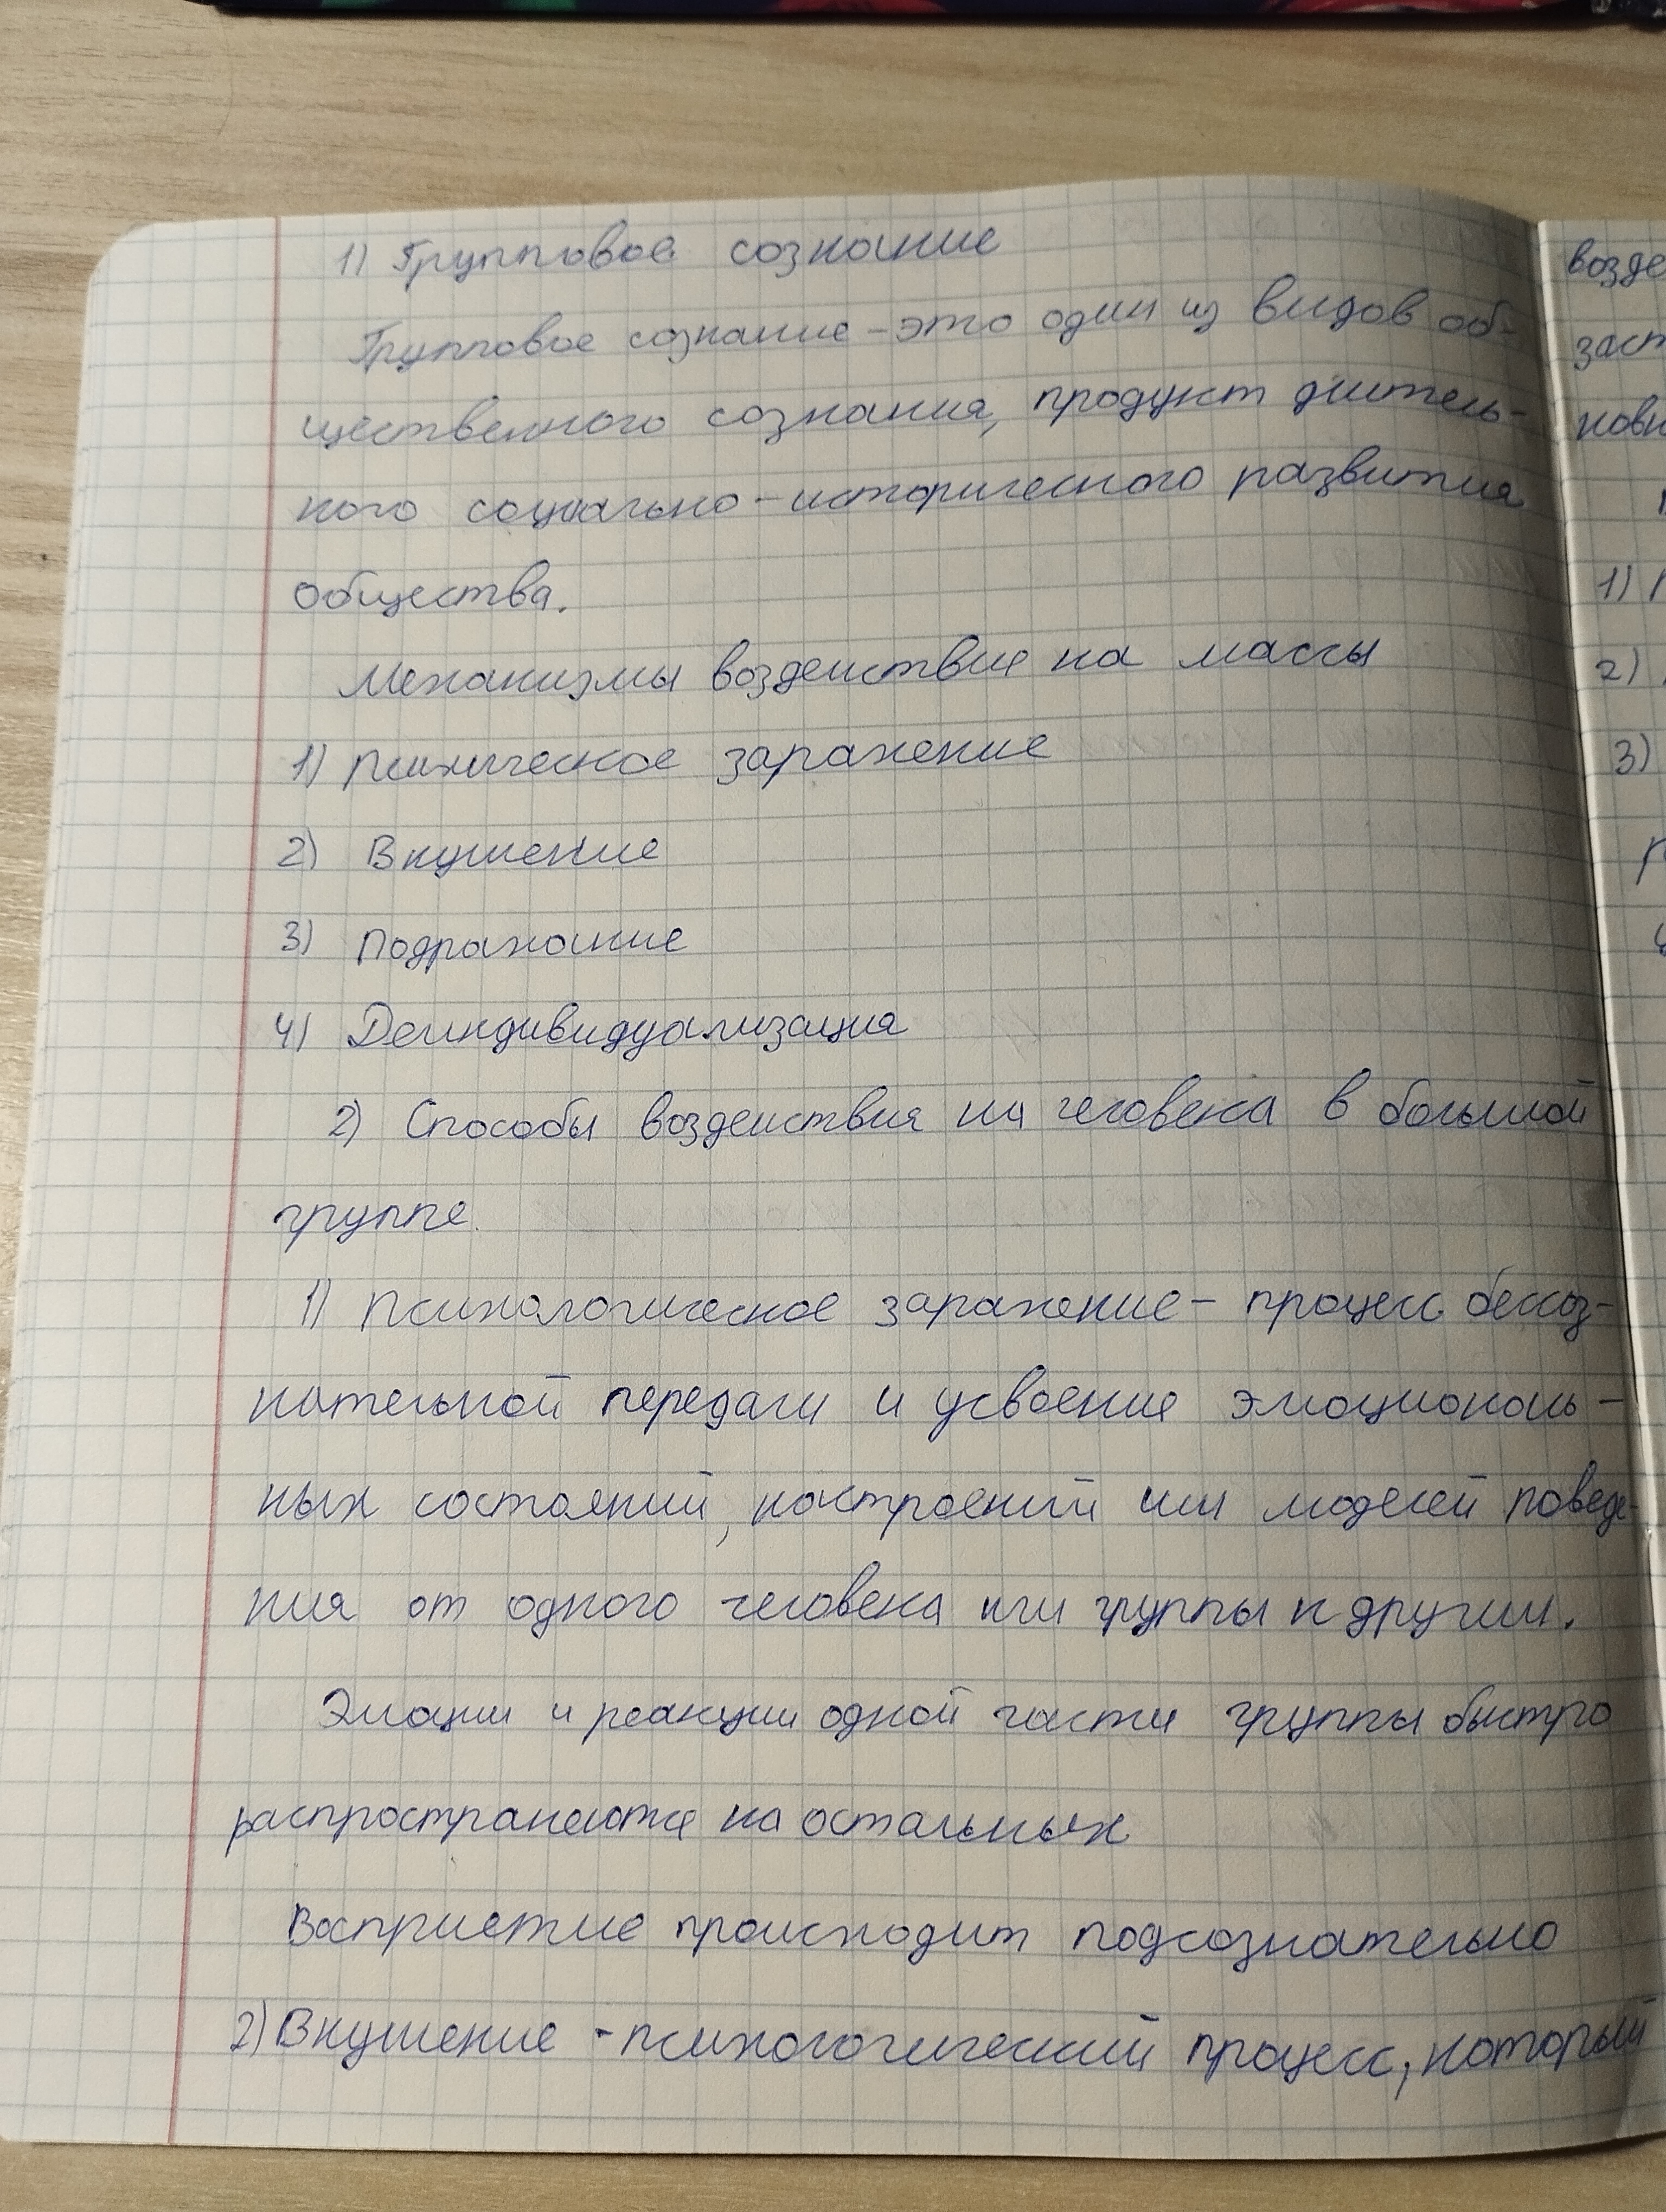 1) Групповое сознание
Групповое сознание – это один из видов об-
щественного сознания, продукт длитель-
ного социально – исторического развития
общества.
Механизмы воздействие на массы
1) Психическое заражение
2) Внушение
3) Подражание
4) Деиндивидуализация
2) Способы воздействия на человека в большой
группе.
1) Психологическое заражение – процесс бессоз-
нательной передачи и усвоение эмоциональ-
ных состояний, настроений или моделей поведе-
ния от одного человека или группы к другим.
Эмоции и реакции одной части группы быстро
распространяются на остальных
Восприятие происходит подсознательно
2) Внушение - психологический процесс, который
возде
заст
новн
1)
2)
3)